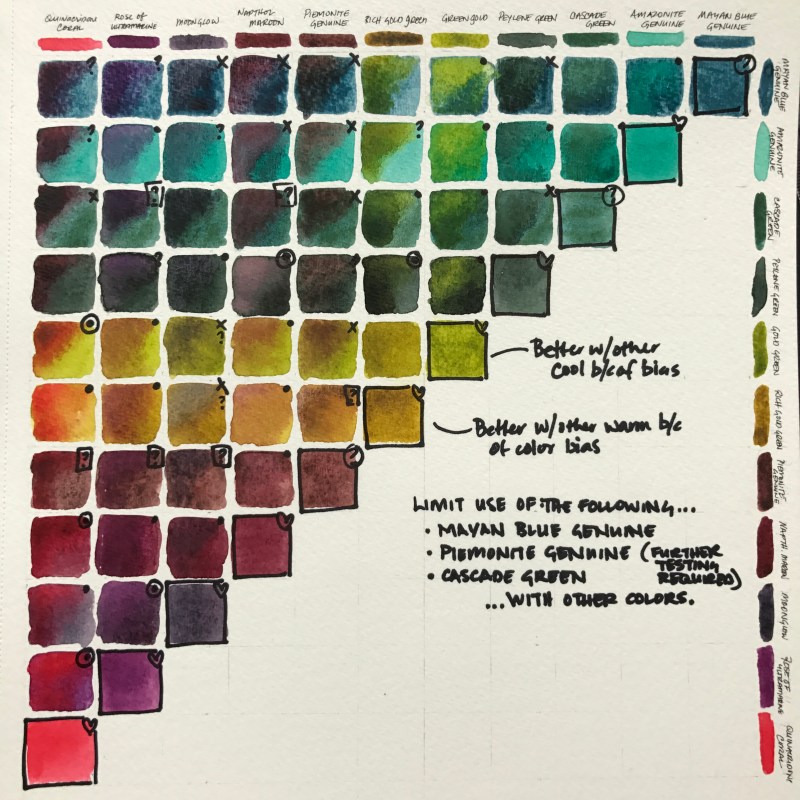 QUINACRIDONE CORAL
ROSE OF ULTRAMARINE
MOONGLOW
NAPTHOL MAROON
PIEMONITE GENUINE
RICH GOLD GREEN
GREEN GOLD
PEYLENE GREEN
CASCADE GREEN
AMAZONITE GENUINE
MAYAN BLUE GENUINE
MAYAN BLUE GENUINE
AMAZONITE GENUINE
CASCADE GREEN
PERLENE GREEN
GOLD GREEN
RICH GOLD GREEN
PIEMONITE GENUINE
NAPTH. MAROON
MOONGLOW
ROSE OF ULTRAMARINE
QUINACRIDONE CORAL
Better w/other
cool b/c of bias
Better w/other warm b/c
of color bias
LIMIT USE OF THE FOLLOWING...
• MAYAN BLUE GENUINE
• PIEMONITE GENUINE (FURTHER TESTING REQUIRED)
• CASCADE GREEN
...WITH OTHER COLORS.